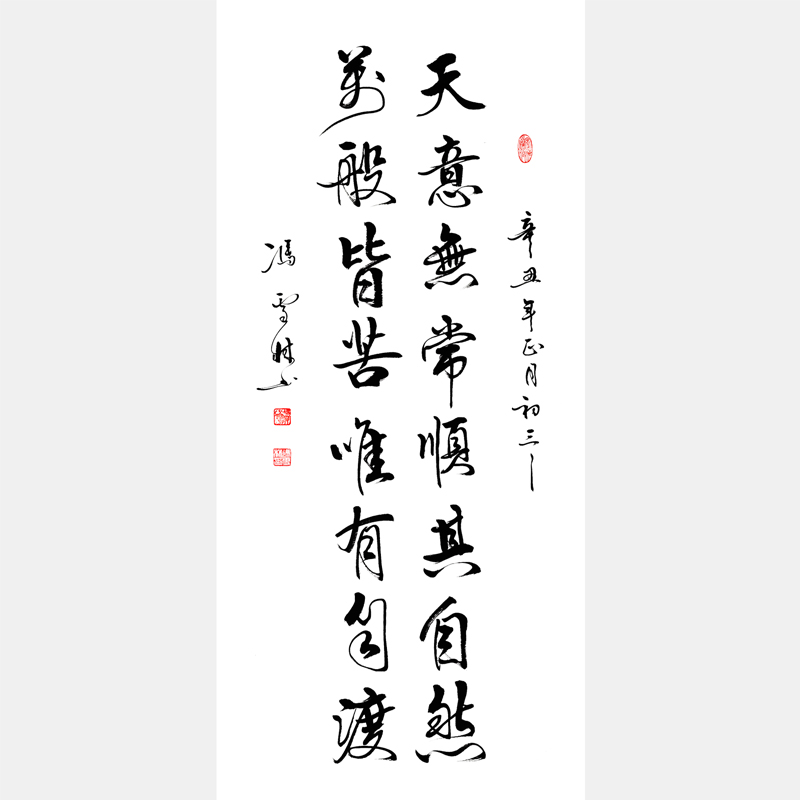 辛丑年正月初三
天意無常順其自然
萬般皆苦唯有自渡
馮雪